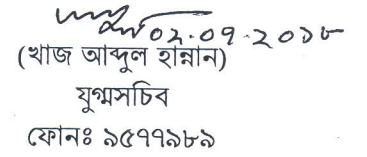 ০২.০৭.২০১৮
(খাজ আব্দুল হান্নান)
যুগ্মসচিব
ফোনঃ ৯৫৭৭৯৮৯